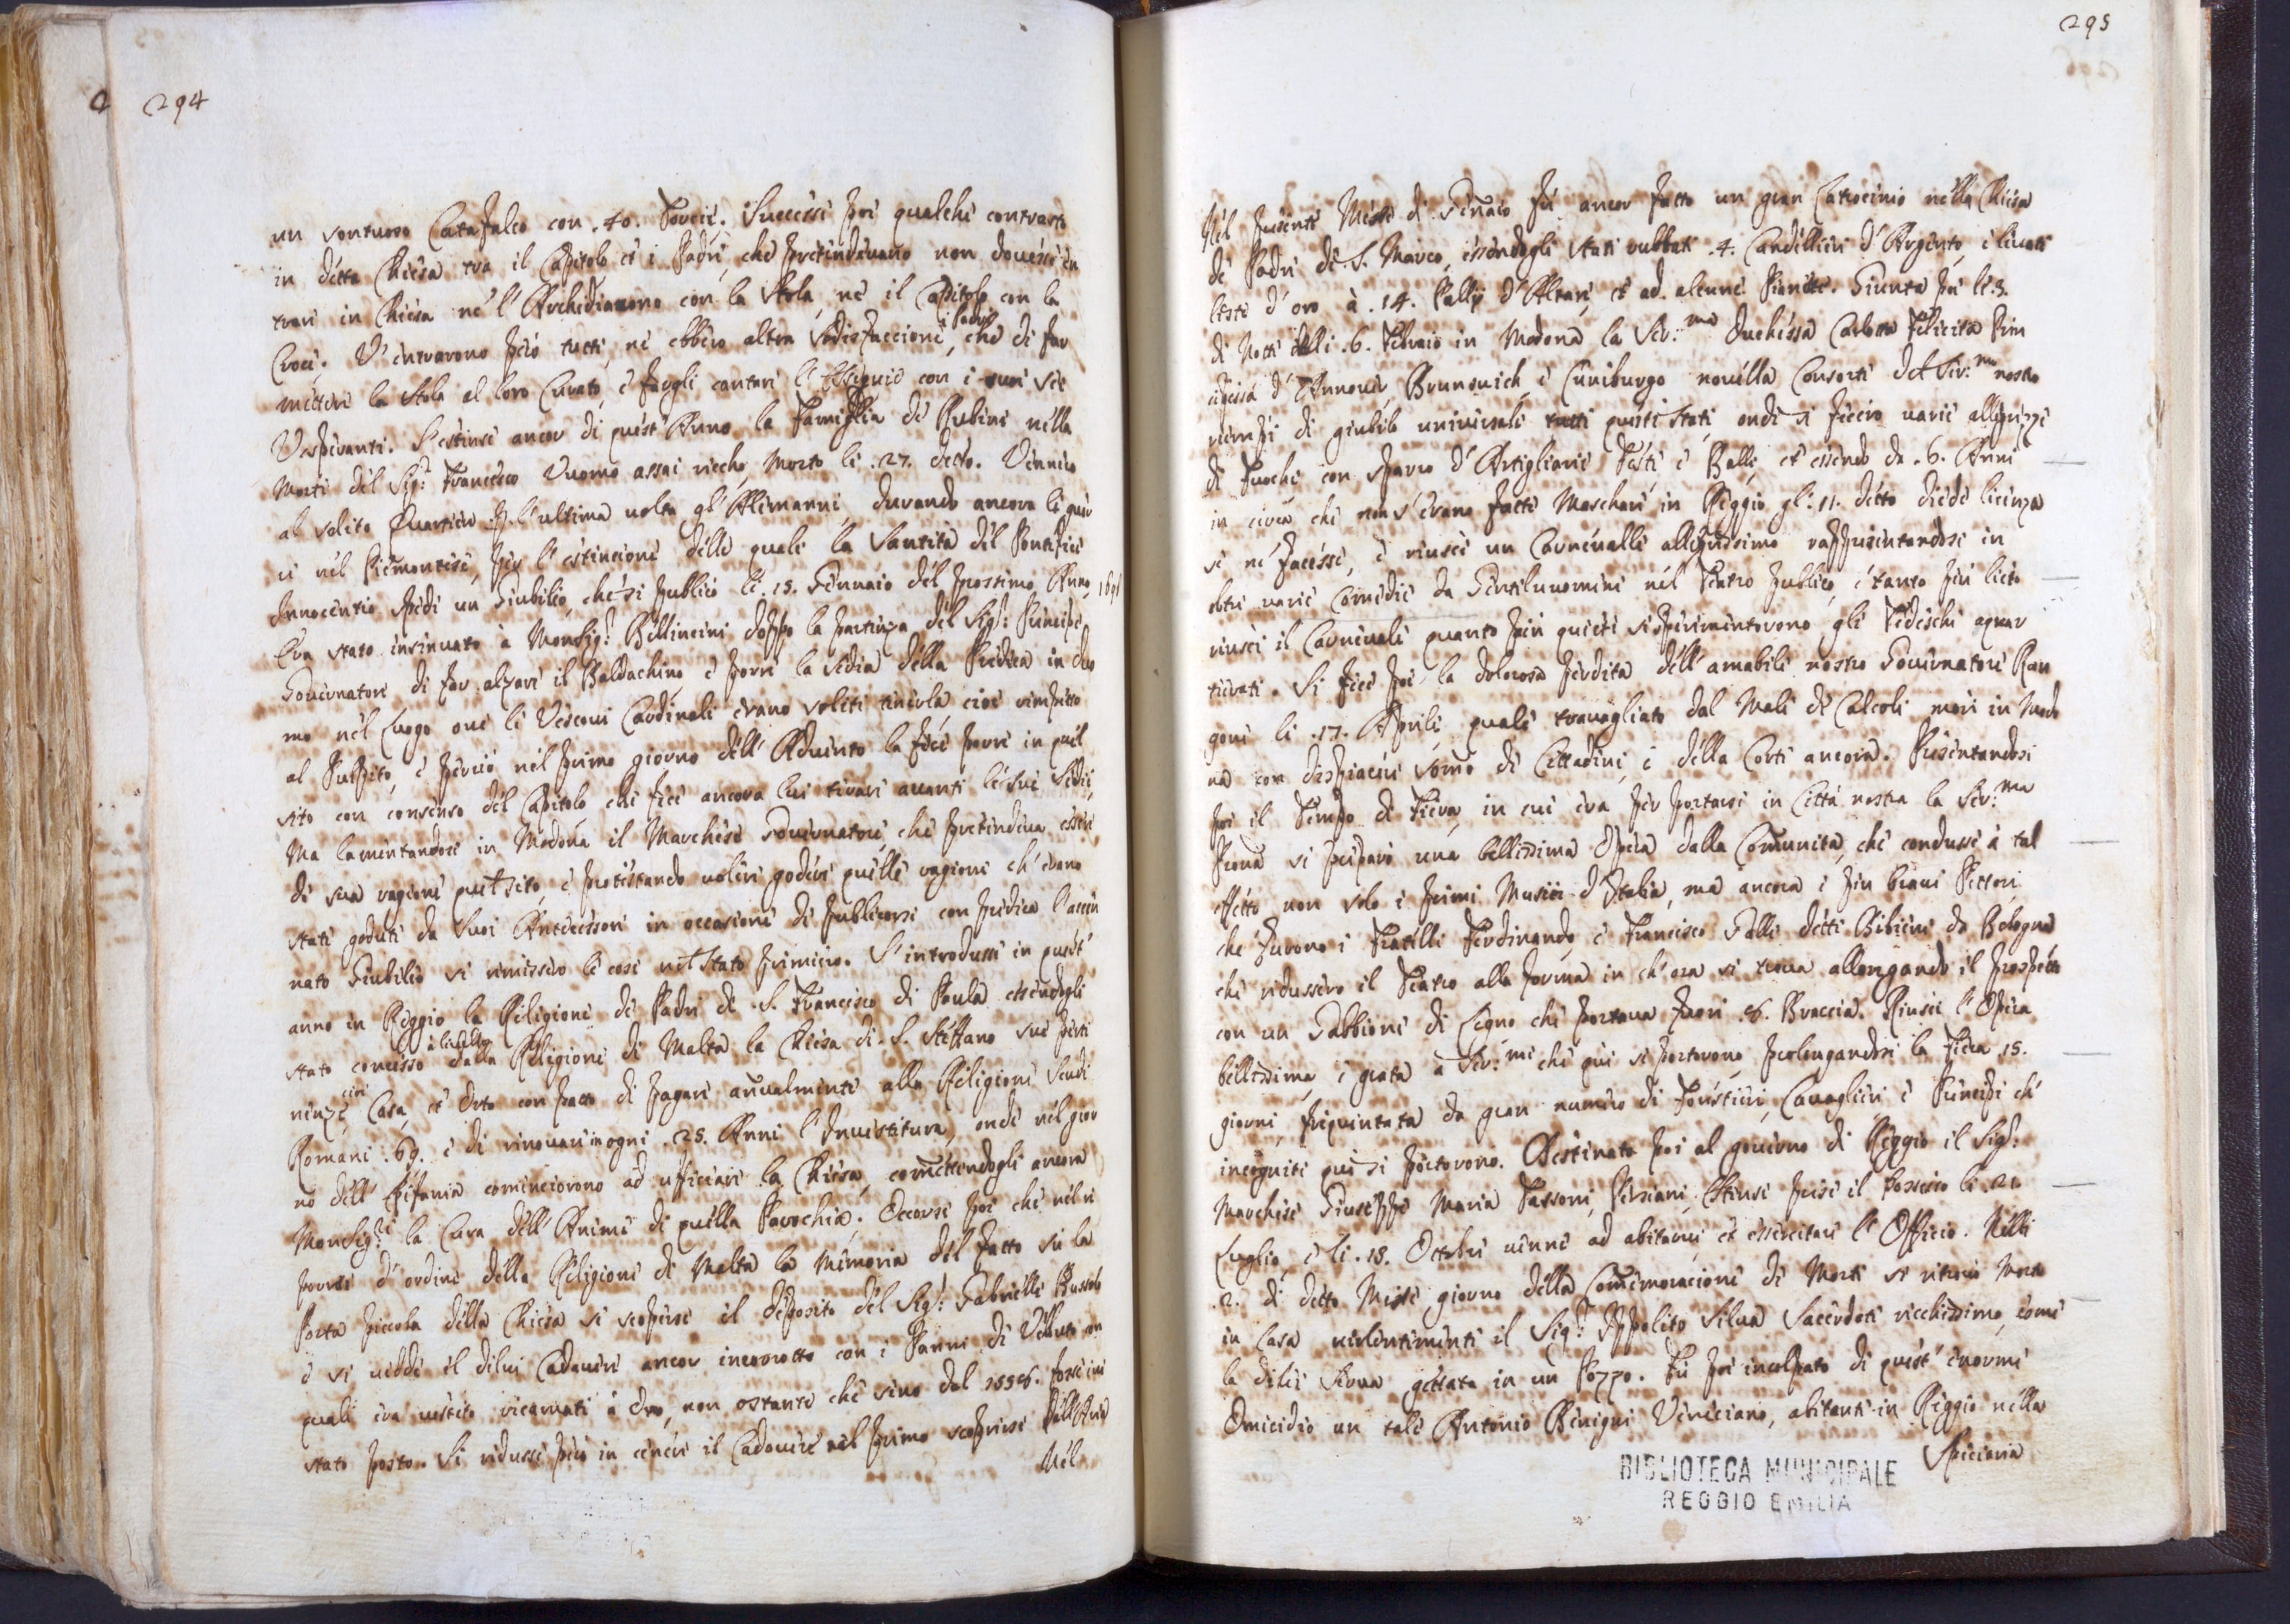 294
un sontuoso Catafalco con .40. Torcie. Successe poi qualche contrasto
in detta Chiesa tra il Capitolo et i Padri, che pretendeuano non douesse en
trare in Chiesa ne l'Archidiacono con la stola, ne il Capitolo con la
Croce. V'entrarono però tutti, ne ebbero altra sodisfaccione i Padri, che di far
mettere la stola al loro Curato, e fargli cantare l'Essequie con i suoi sei
Vesperanti. S'estinse ancor di quest'Anno la Famiglia de Rubini nella
Morte del Sig.r Francesco Vuomo assai riccho, Morto li .27. detto. Vennero
al solito Quartiere p. l'ultima uolta gl'Alemanni, durando ancora le guer
re nel Piemontese, per l'estincione delle quali la Santità del Pontefice
Innocentio spedì un Giubileo, che si publicò li .15. Gennaio del prossimo Anno, 1696
Era stato insinuato à Monsig.r Bellincini doppo la partenza del Sig.r Principe
Gouernatore di far alzare il Baldachino, e porre la sedia della Predica in duo
mo nel Luogo oue li Vescoui Cardinali erano soliti tenerla cioè rimpetto
al Pulpito, e perciò nel primo giorno dell'Aduento la fece porre in quel
sito con consenso del Capitolo che fece ancora lui tirare auanti le sue sedie,
Ma lamentandosi in Modona il Marchese Gouernatore, che pretendeua essere
di sua ragione quel sito, e protestando uolere godere quelle ragioni ch'erano
state godute da Suoi Antecessori in occasione di publicarsi con predica l'accen
nato Giubileo si rimissero le cose nel stato primiero. S'introdusse in quest'
anno in Reggio la Religione de Padri di S. Francesco di Paula essendogli
stato concesso à liuello dalla Religione di Malta la Chiesa di S. Steffano sue perti
nenze, cioè Casa, et Orto con patto di pagare anualmente alla Religione Scudi
Romani .69. e di rinouare in ogni .25. Anni l'Inuestitura, onde nel gior
no dell'Epifania cominciorono ad ufficiare la Chiesa, comettendogli ancora
Monsig.re la Cura dell'Anime di quella Parochia. Occorse poi che nel ri
porre d'ordine della Religione di Malta la Memoria del fatto su la
Porta piccola della Chiesa si scoperse il deposito del Sig.r Gabrielle Bussolo
e si uidde il dilui Cadauere ancor incorrotto con i Panni di Velluto con
quali era uestito ricamati à Oro, non ostante che sino dal 1556. fosse iui
stato posto. Si ridusse però in cenere il Cadauere nel primo scoprirse dall'Aria
Nel
295
Nel presente Mese di Genaio fù ancor fatto un gran Latrocinio nella Chiesa
de Padri di S. Marco, essendogli stati rubbati .4. Candellieri d'Argento, e leuati
le teste d'oro à .14. Pallij d'Altare, et ad alcune Pianete. Giunta poi le .3.
di Notte delli .6. Febraio in Modona la Ser.ma Duchessa Carlotta Felicita Prin
cipessa d'Annouer, Brunsuich, e Luniburgo nouella Consorte del Ser.mo nostro
riempì di giubilo uniuersale tutti questi Stati, onde si fecero uarie allegrezze
di Fuochi con sparro d'Artigliarie Feste, e Balli, et essendo da .6. Anni
in circa che non s'erano fatte Maschare in Reggio gl'.11. detto diede licenza
se ne facesse, e riuscì un Carneualle allegrissimo rappresentandosi in
oltre uarie Comedie da Gentiluomini nel Teatro publico, e tanto più lieto
riuscì il Carneuale quanto più quieti si sperimentorono gli Tedeschi aquar
tierati. Si fece poi la dolorosa perdita dell'amabile nostro Gouernatore Ran
goni li .17. Aprile, quale trauagliato dal Male di Calcoli morì in Modo
na con dispiacere somo de Cittadini, e della Corte ancora. Presentandosi
poi il Tempo di Fiera, in cui era per portarsi in Città nostra la Ser.ma
Prona si preparò una bellissima Opera dalla Comunità, che condusse à tal
effetto non solo i primi Musici d'Italia, mà ancora i più braui Pittori
che furono i Fratelli Ferdinando, e Francesco Galli detti Bibieni da Bologna
che ridussero il Teatro alla forma in ch'ora si troua allongando il prospetto
con un Gabbione di Legno che portaua fuori .6. Braccia. Riuscì l'Opera
bellissima, e grata a Ser.mi che qui si portorono, prolongandosi la Fiera .15.
giorni, frequentata da gran numero di Forastieri, Cauaglieri, e Principi ch'
incogniti qui si portorono. Destinato poi al gouerno di Reggio il Sig.r
Marchese Giuseppe Maria Tassoni, Estense prese il Possesso li .21.
Luglio, e li .18. Ottobre uenne ad abitarui, et essercitare l'Officio. Nelli
.2. di detto Mese giorno della Comemoracione de Morti si ritrouò Morto
in Casa uiolentemente il Sig.r Ippolito Silua Sacerdote ricchissimo, come
la dilei Serua gettata in un Pozzo. Fù poi incolpato di quest'enorme
Omicidio un tale Antonio Benigni Veneciano, abitante in Reggio nella
Speciaria
BIBLIOTECA MUNICIPALE
REGGIO EMILIA